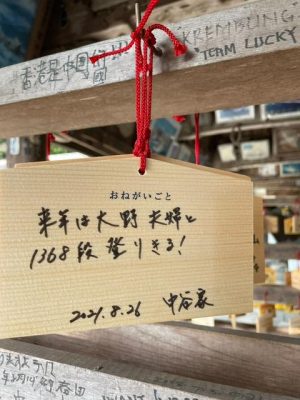 KREMBUNG
TEAM LUCKY
香港是中国
おねがいごと
来年は大野夫婦と
1368段登りきる!
2021.8.26 中谷家